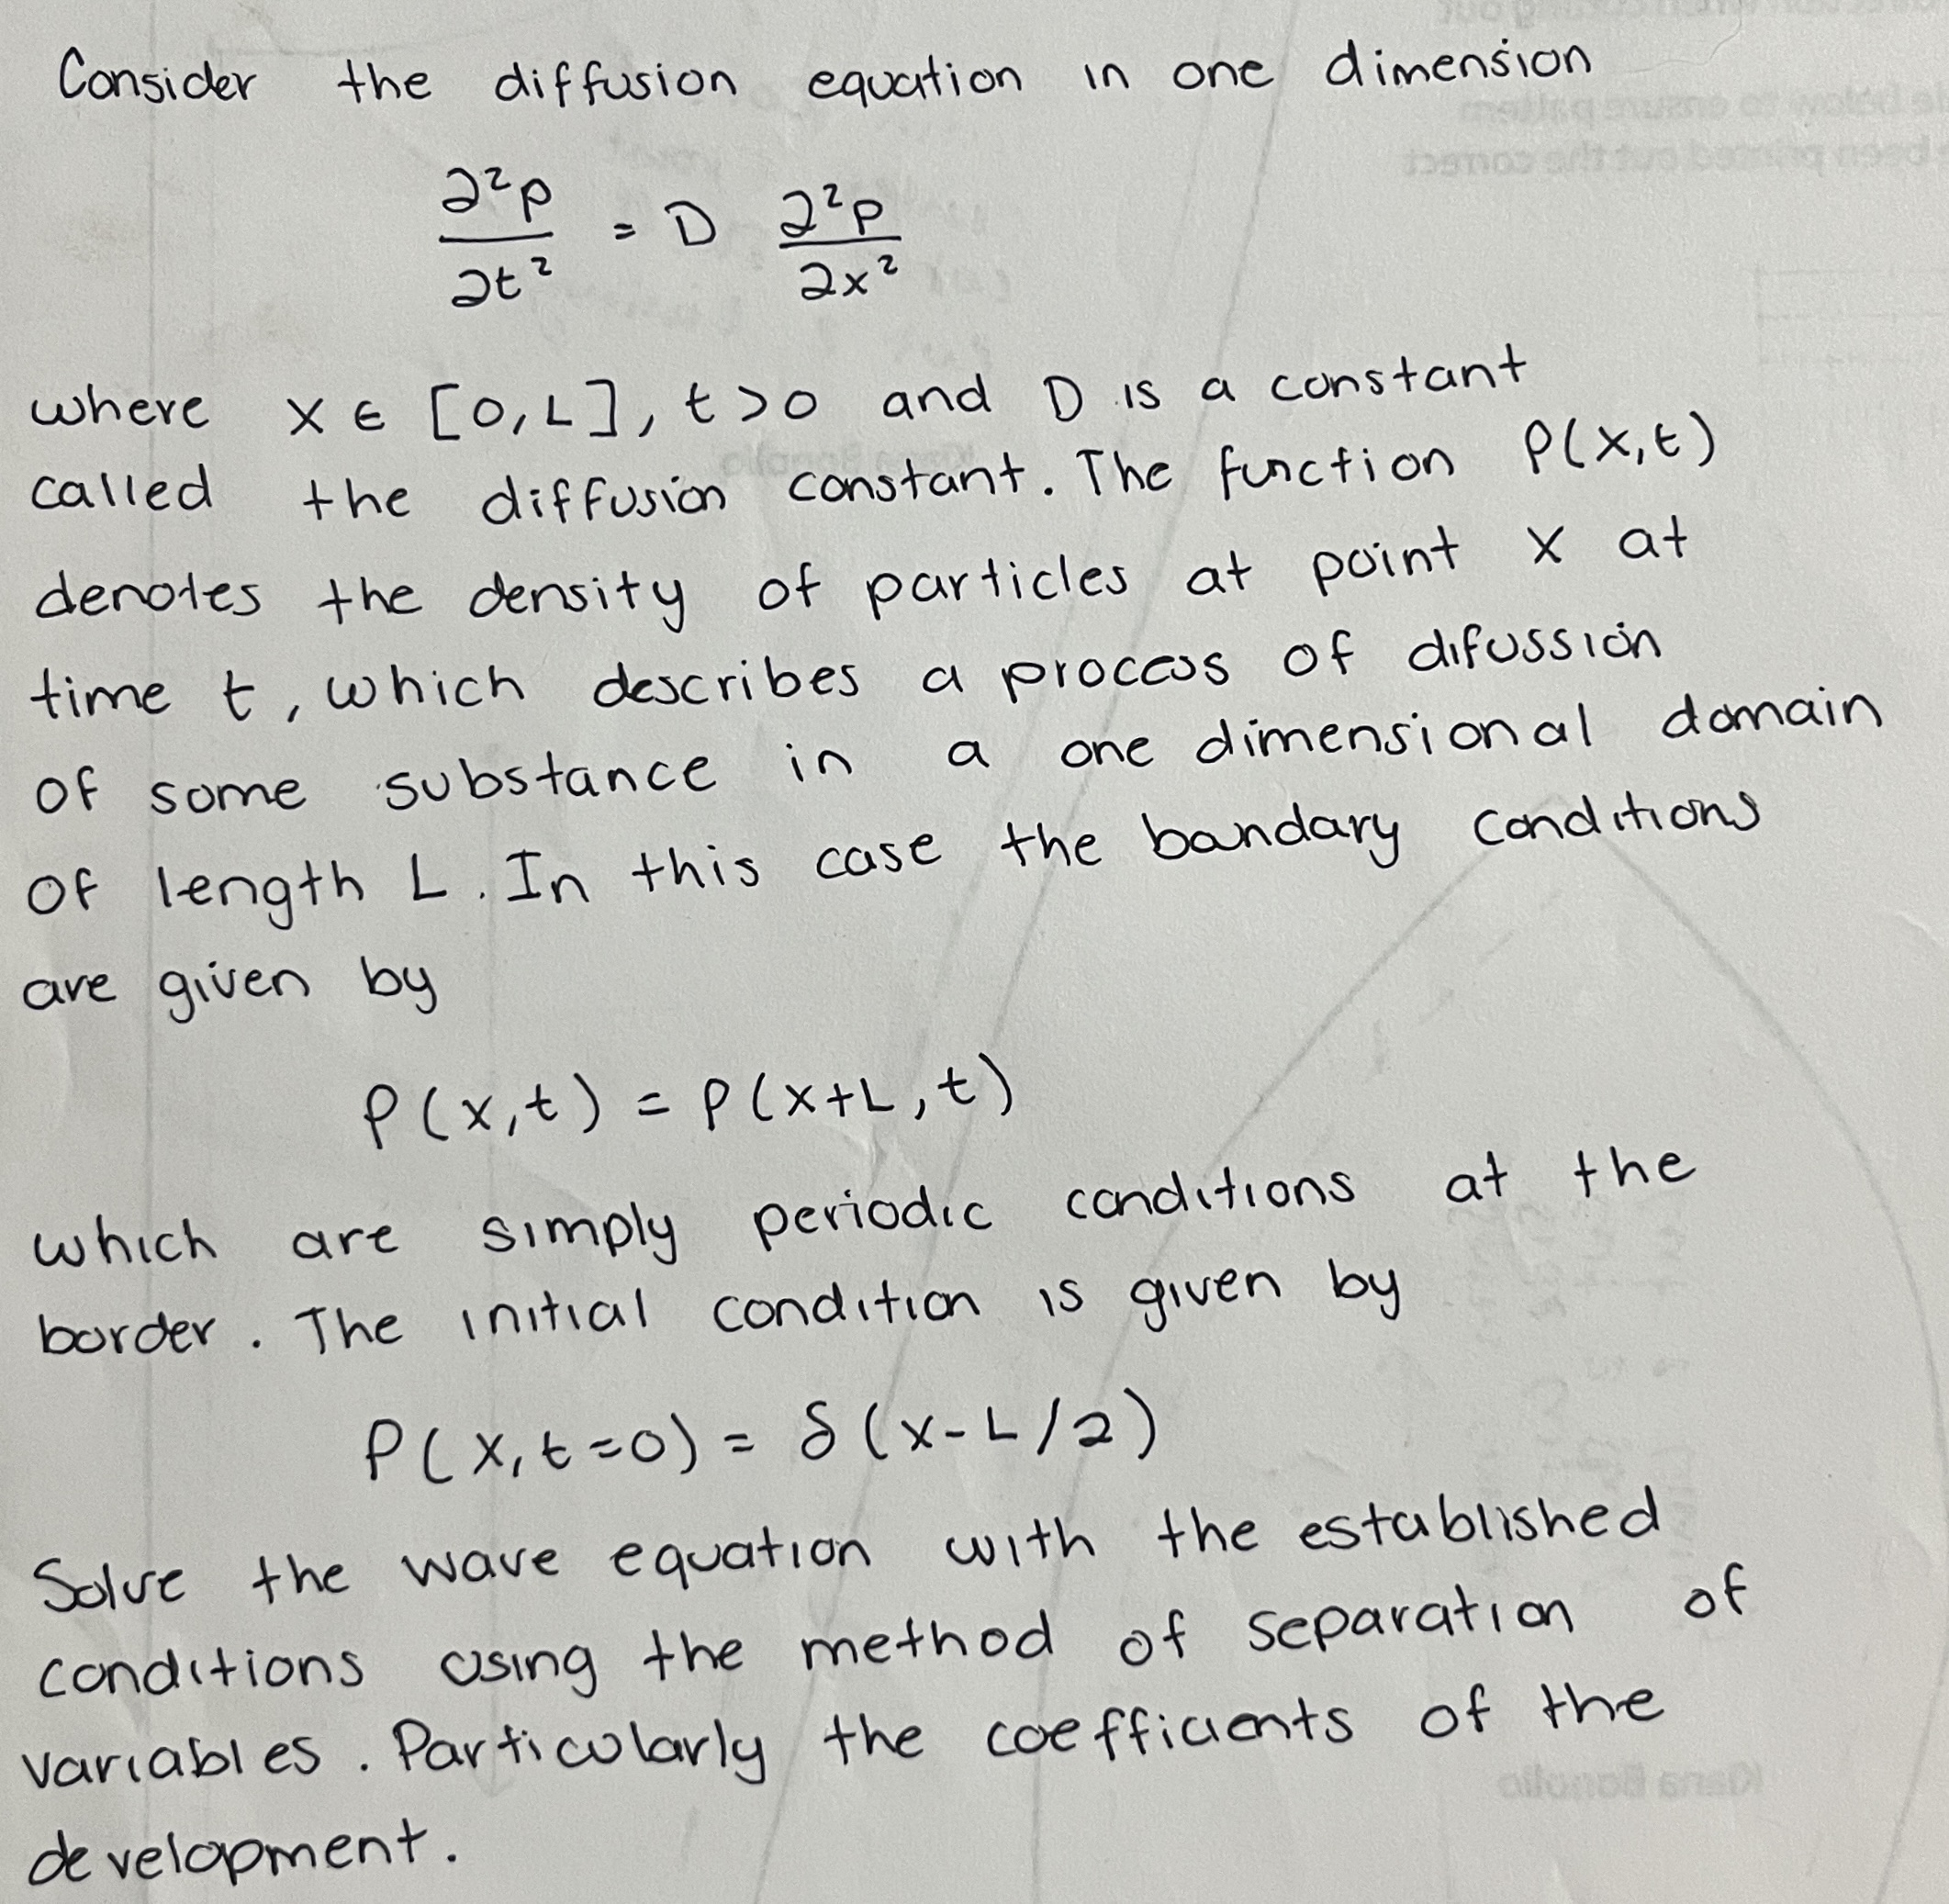 Consider the diffusion equation in one dimension
∂²ρ/∂t² = D ∂²ρ/∂x²
where x ∈ [0,L], t>0 and D is a constant
called the diffusion constant. The function ρ(x,t)
denotes the density of particles at point x at
time t, which describes a process of difussion
of some substance in a one dimensional domain
of length L. In this case the boundary conditions
are given by
ρ(x,t) = ρ(x+L,t)
which are simply periodic conditions at the
border. The initial condition is given by
ρ(x,t=0) = δ(x-L/2)
Solve the wave equation with the established
conditions using the method of separation of
variables. Particularly the coefficients of the
development.